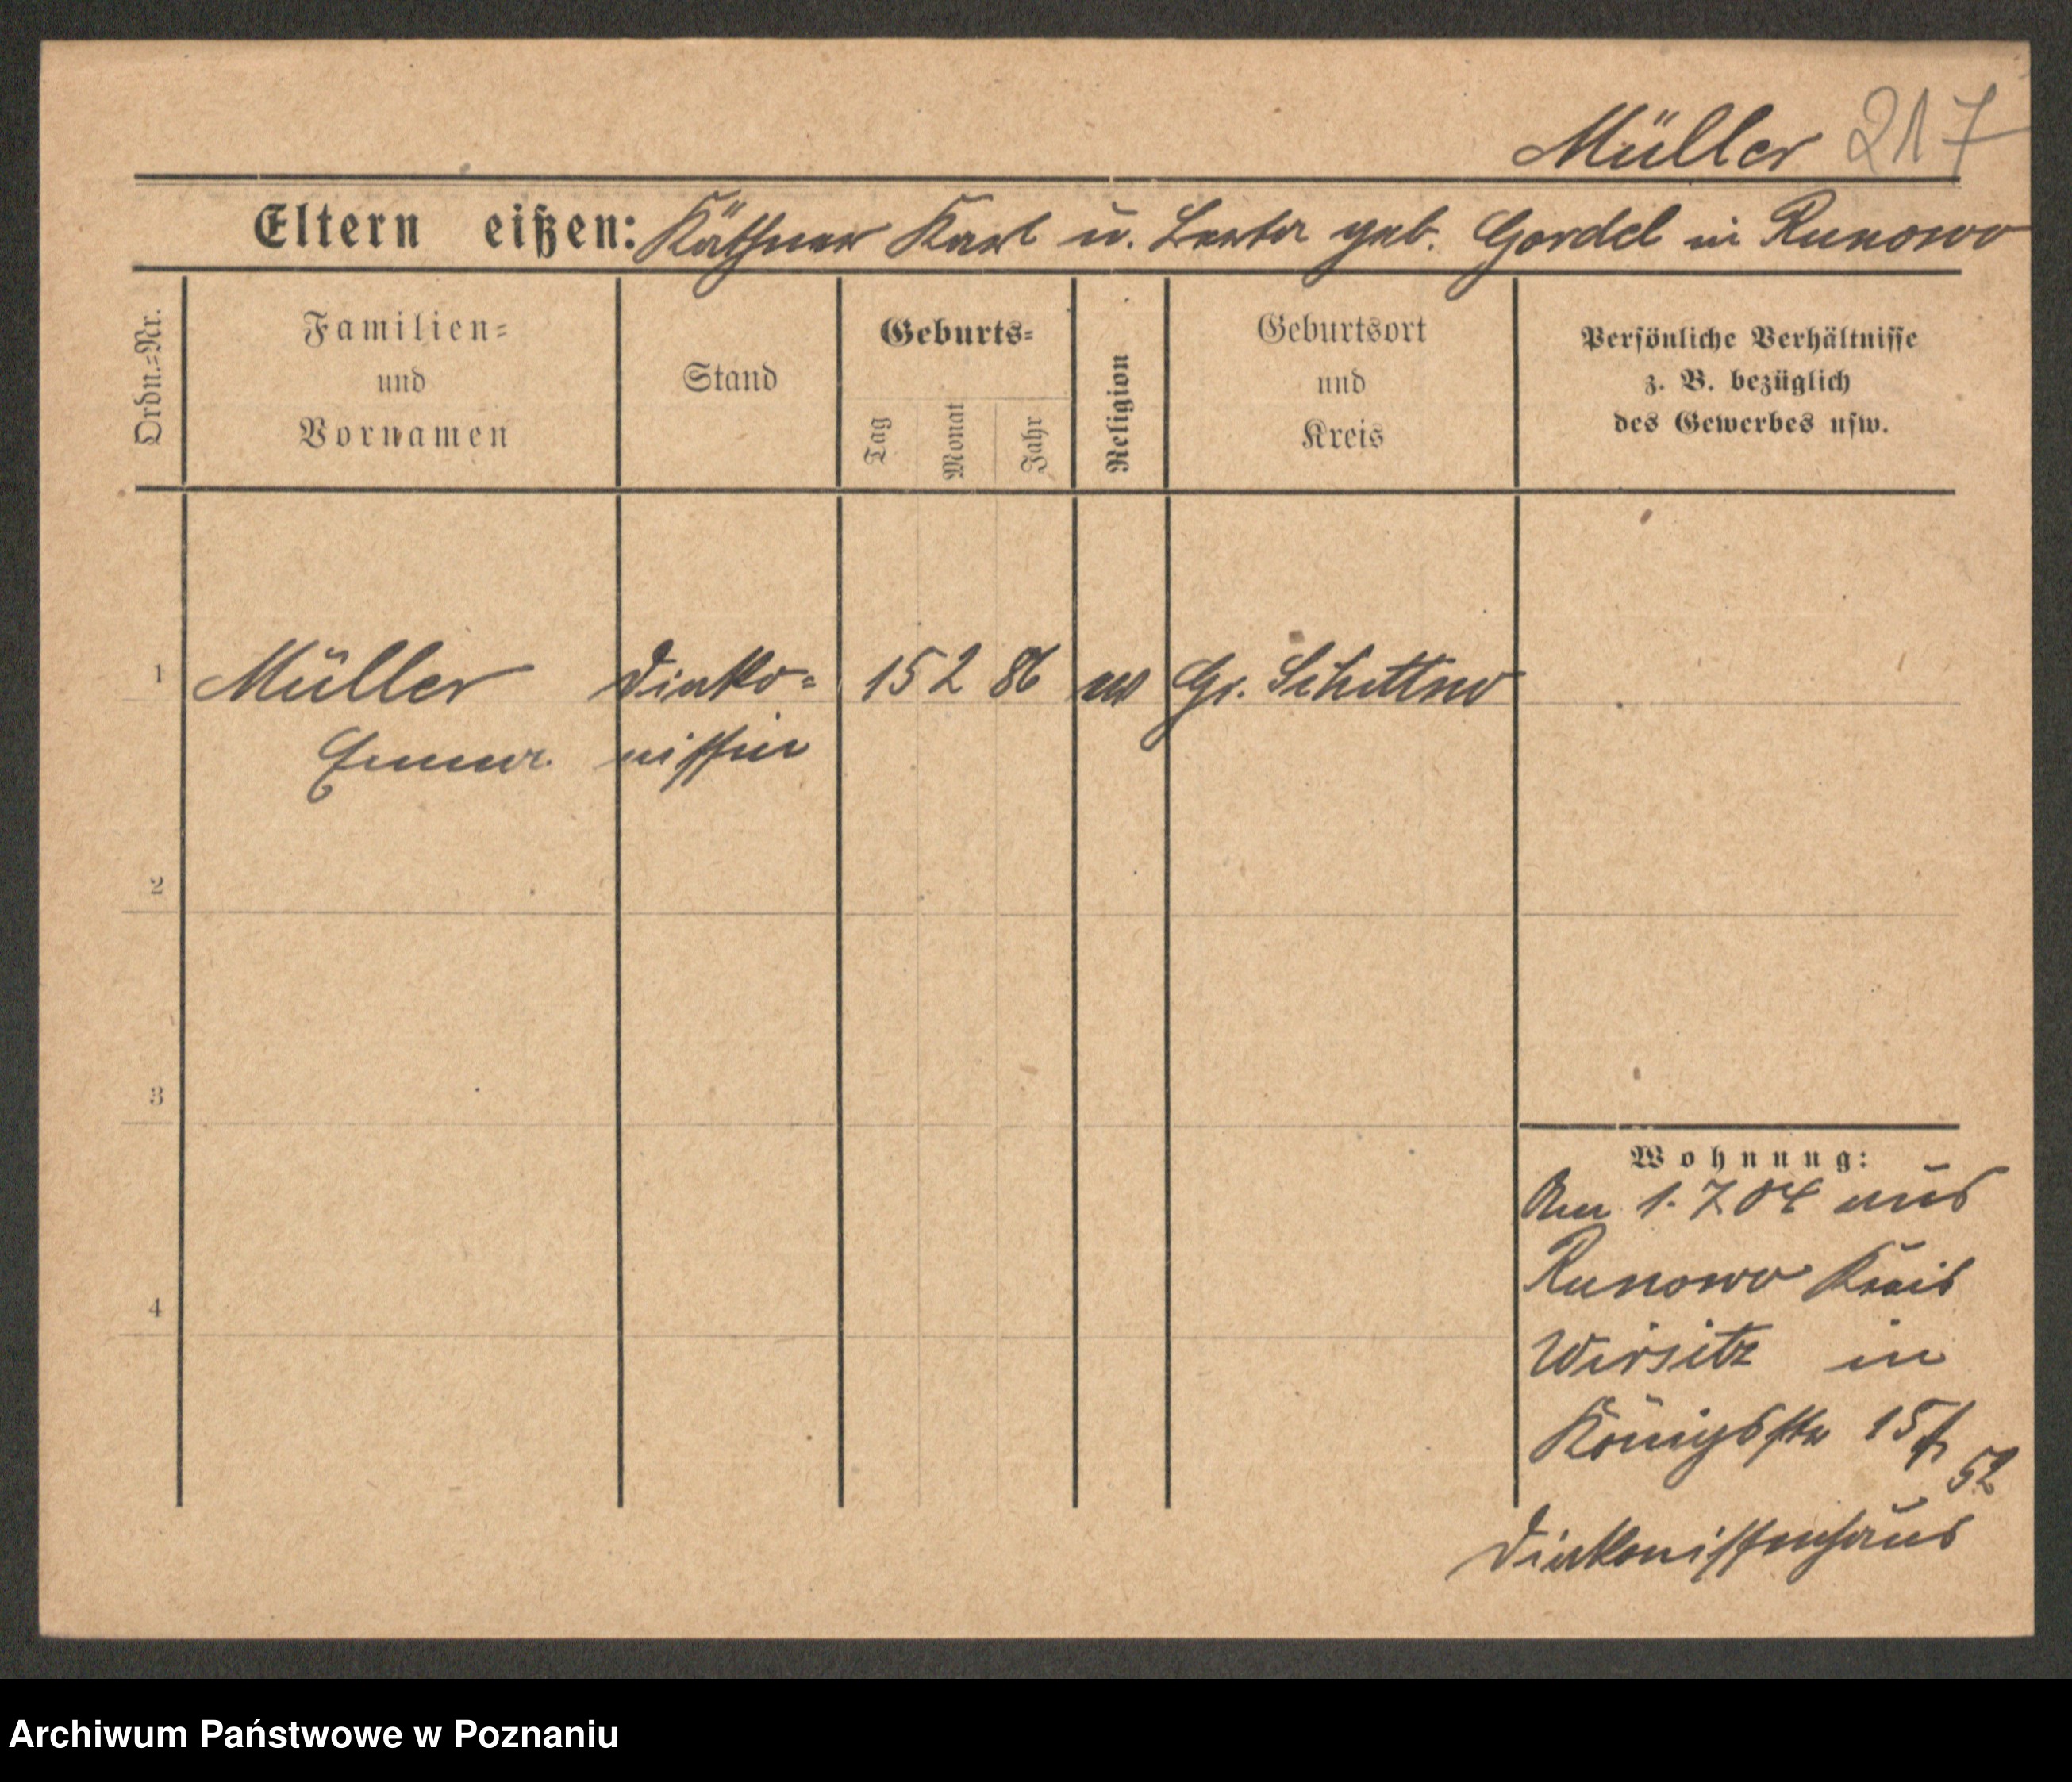 Müller 217
Eltern eißen: Käthner Karl u. Berta geb. Gordel in Runowo
Ordn.=Nr.
Familien=
und
Vornamen
Stand
Geburts=
Tag
Monat
Jahr
Religion
Geburtsort
und
Kreis
Persönliche Verhältnisse
z. B. bezüglich
des Gewerbes usw.
1 Müller Diako= 15 2 86 ev Gr.
Emma nissin
2
3
4
Wohnung:
Am 1. 7 04 aus
Runowo Kreis
Wirsitz in
Königstr 15
52
Diakonissenhaus
Archiwum Państwowe w Poznaniu